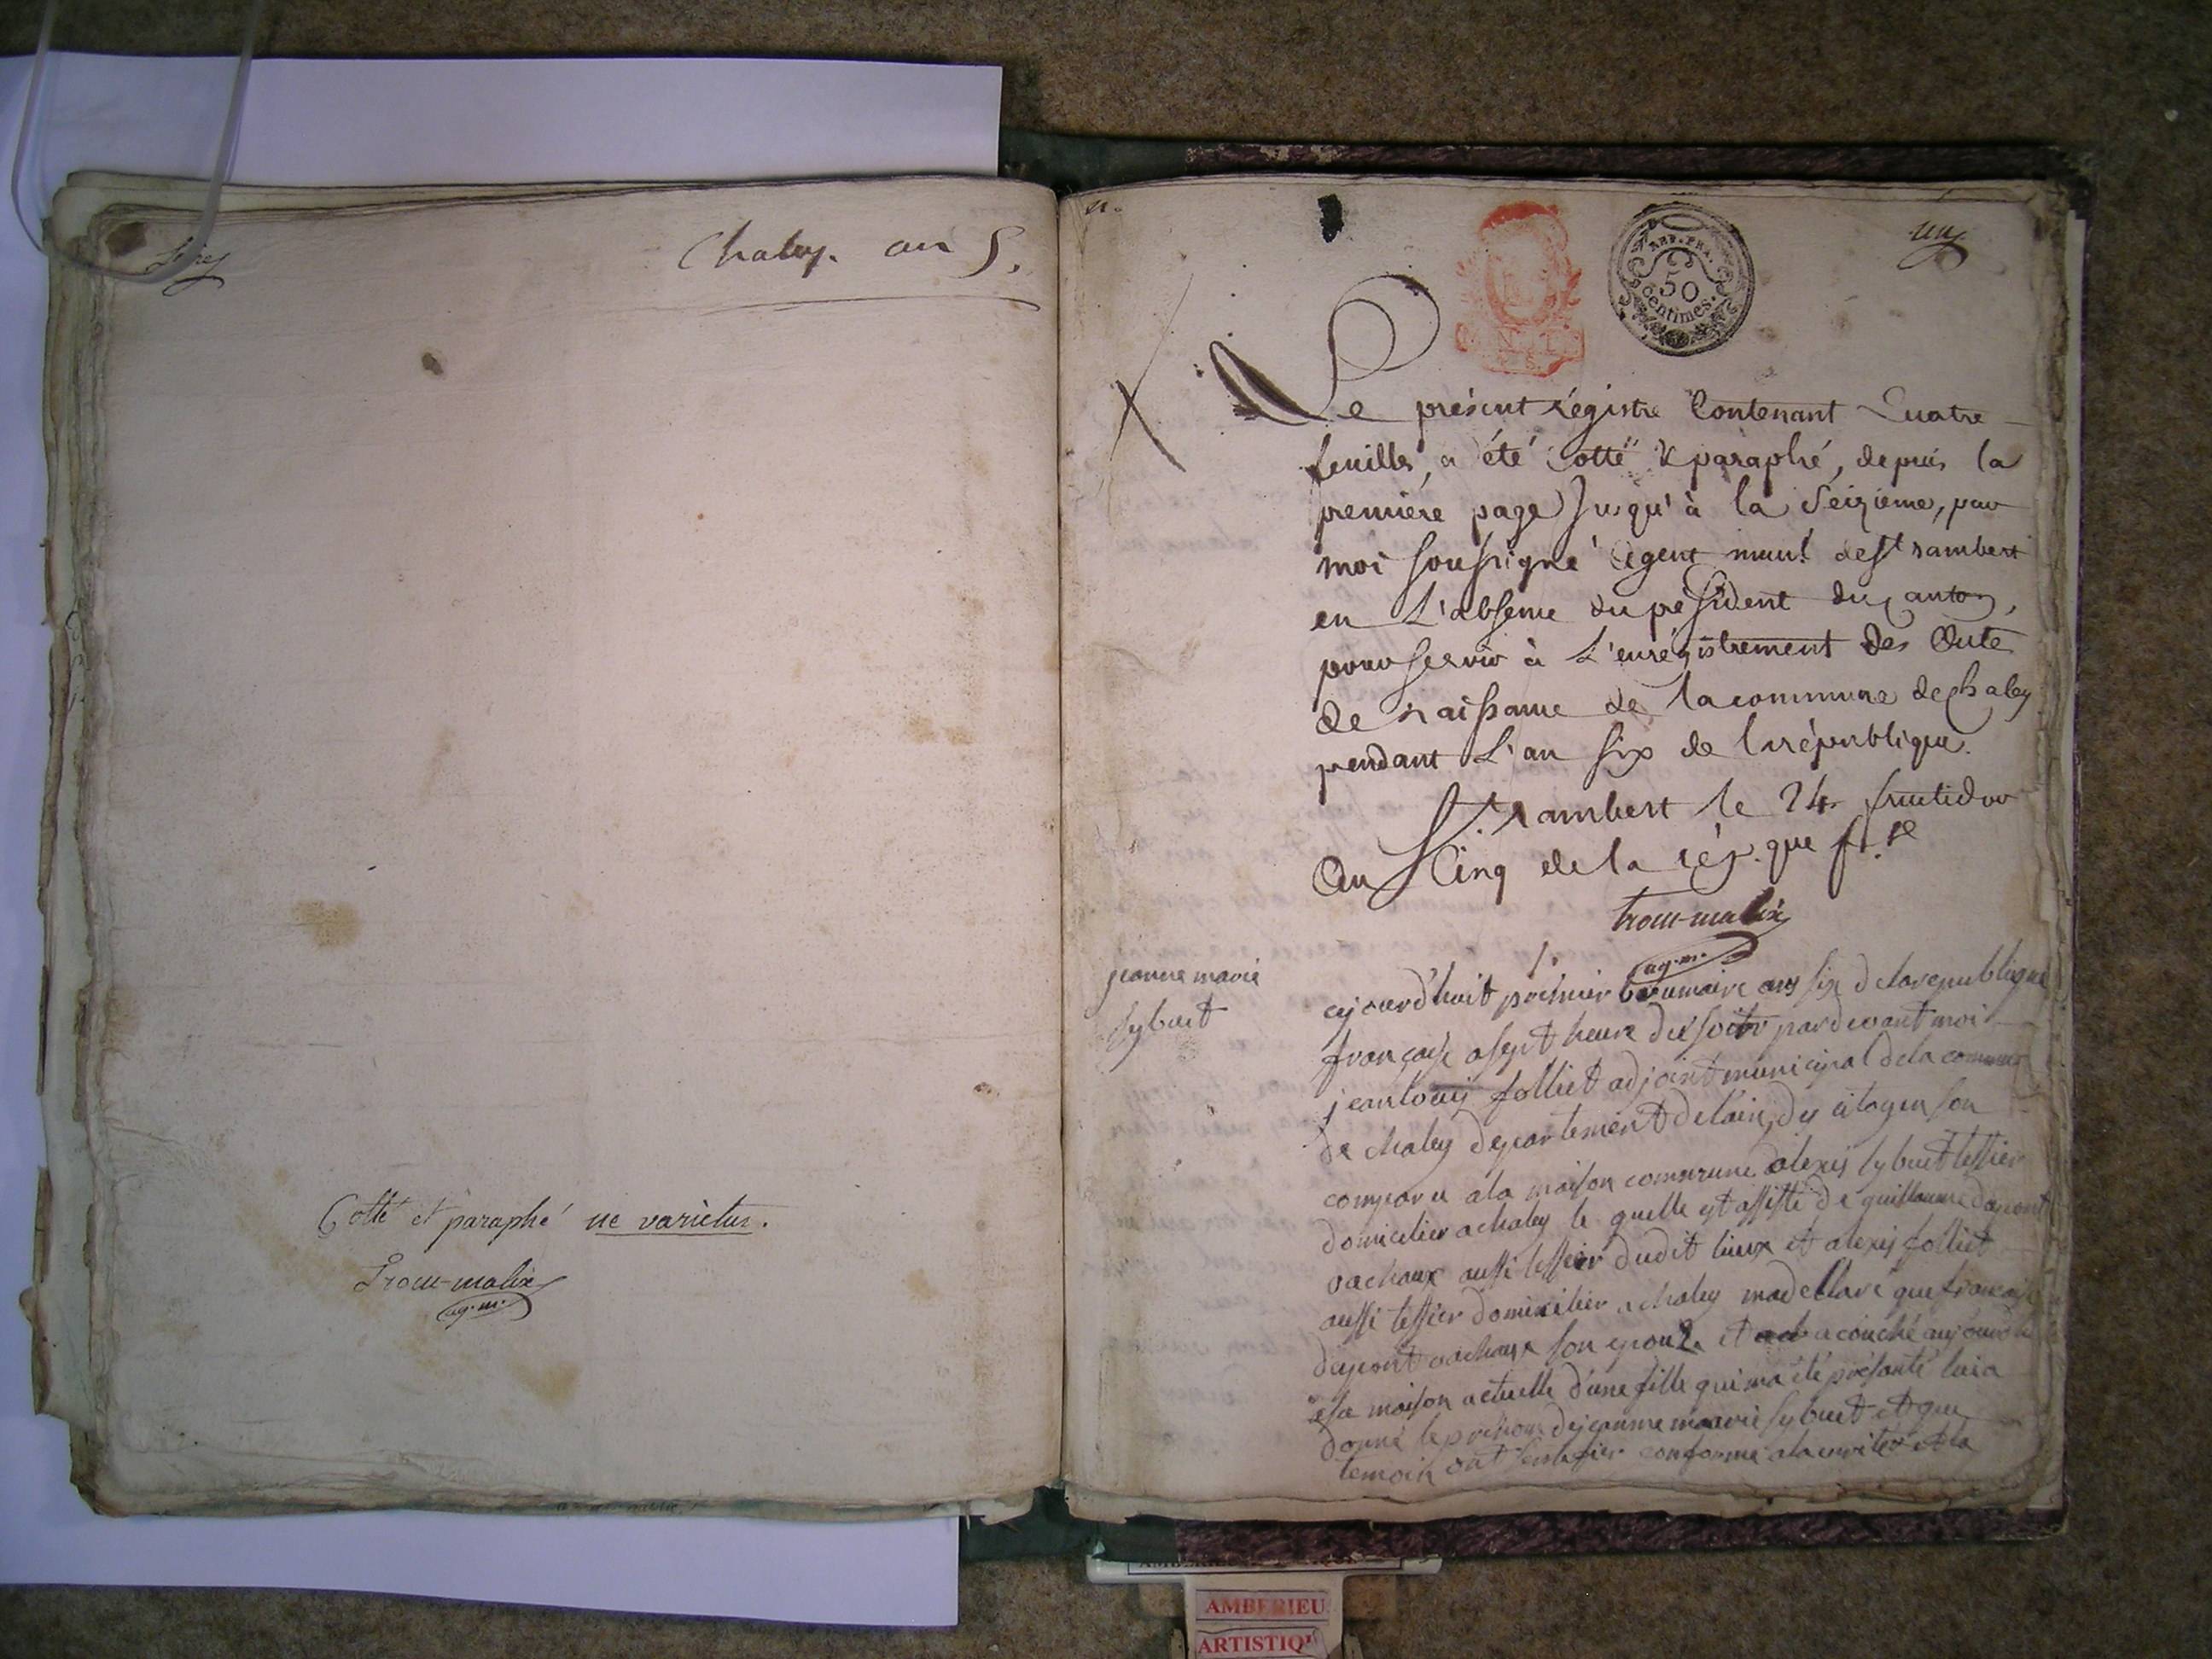 Seize
Chaley. an 5.
Cotté et paraphé ne varietur.
Trocu-malix
ag. m.
un
REP. FRA.
50
centimes.
Le présent régistre Contenant Quatre
feuilles, a été Cotté & paraphé, depuis la
premiére page Jusqu'à la Seizieme, par
moi Soussigné Agent mun.l de St rambert
en L'absence du président du Canton,
pour Servir à L'enrégistrement des Actes
de naissance de la commune de chaley
pendant L'an Six de la république.
St. Rambert le 24 fructidor
An Cinq de la rép.que fr.se
Trocu-malix
ag. m.
1.
jeanne marie
sybuet
ajourd'huit prémier brumaire ans six de la republique
françaisse a sept heure du soitr par devant moi
jean louis folliet adjoint municipal de la commune
de chaley departement de l'ain, du citoyen son
comparu a la maison commune alexis sybuet tessier
domicilier a chaley le quelle est assisté de guillaume dupont
vachoux aussi tessier dudit lieux et alexis folliet
aussi tessier domicilier a chaley ma decllaré que francoise
dupont vachoux son epouze et acouché aujourdh
a sa maison actuelle d'une fille qui ma été présanté lui a
donné le prénom de jeanne marie sybuet et que
temoin ont conforme a la verite et la
AMBERIEU
ARTISTIQU